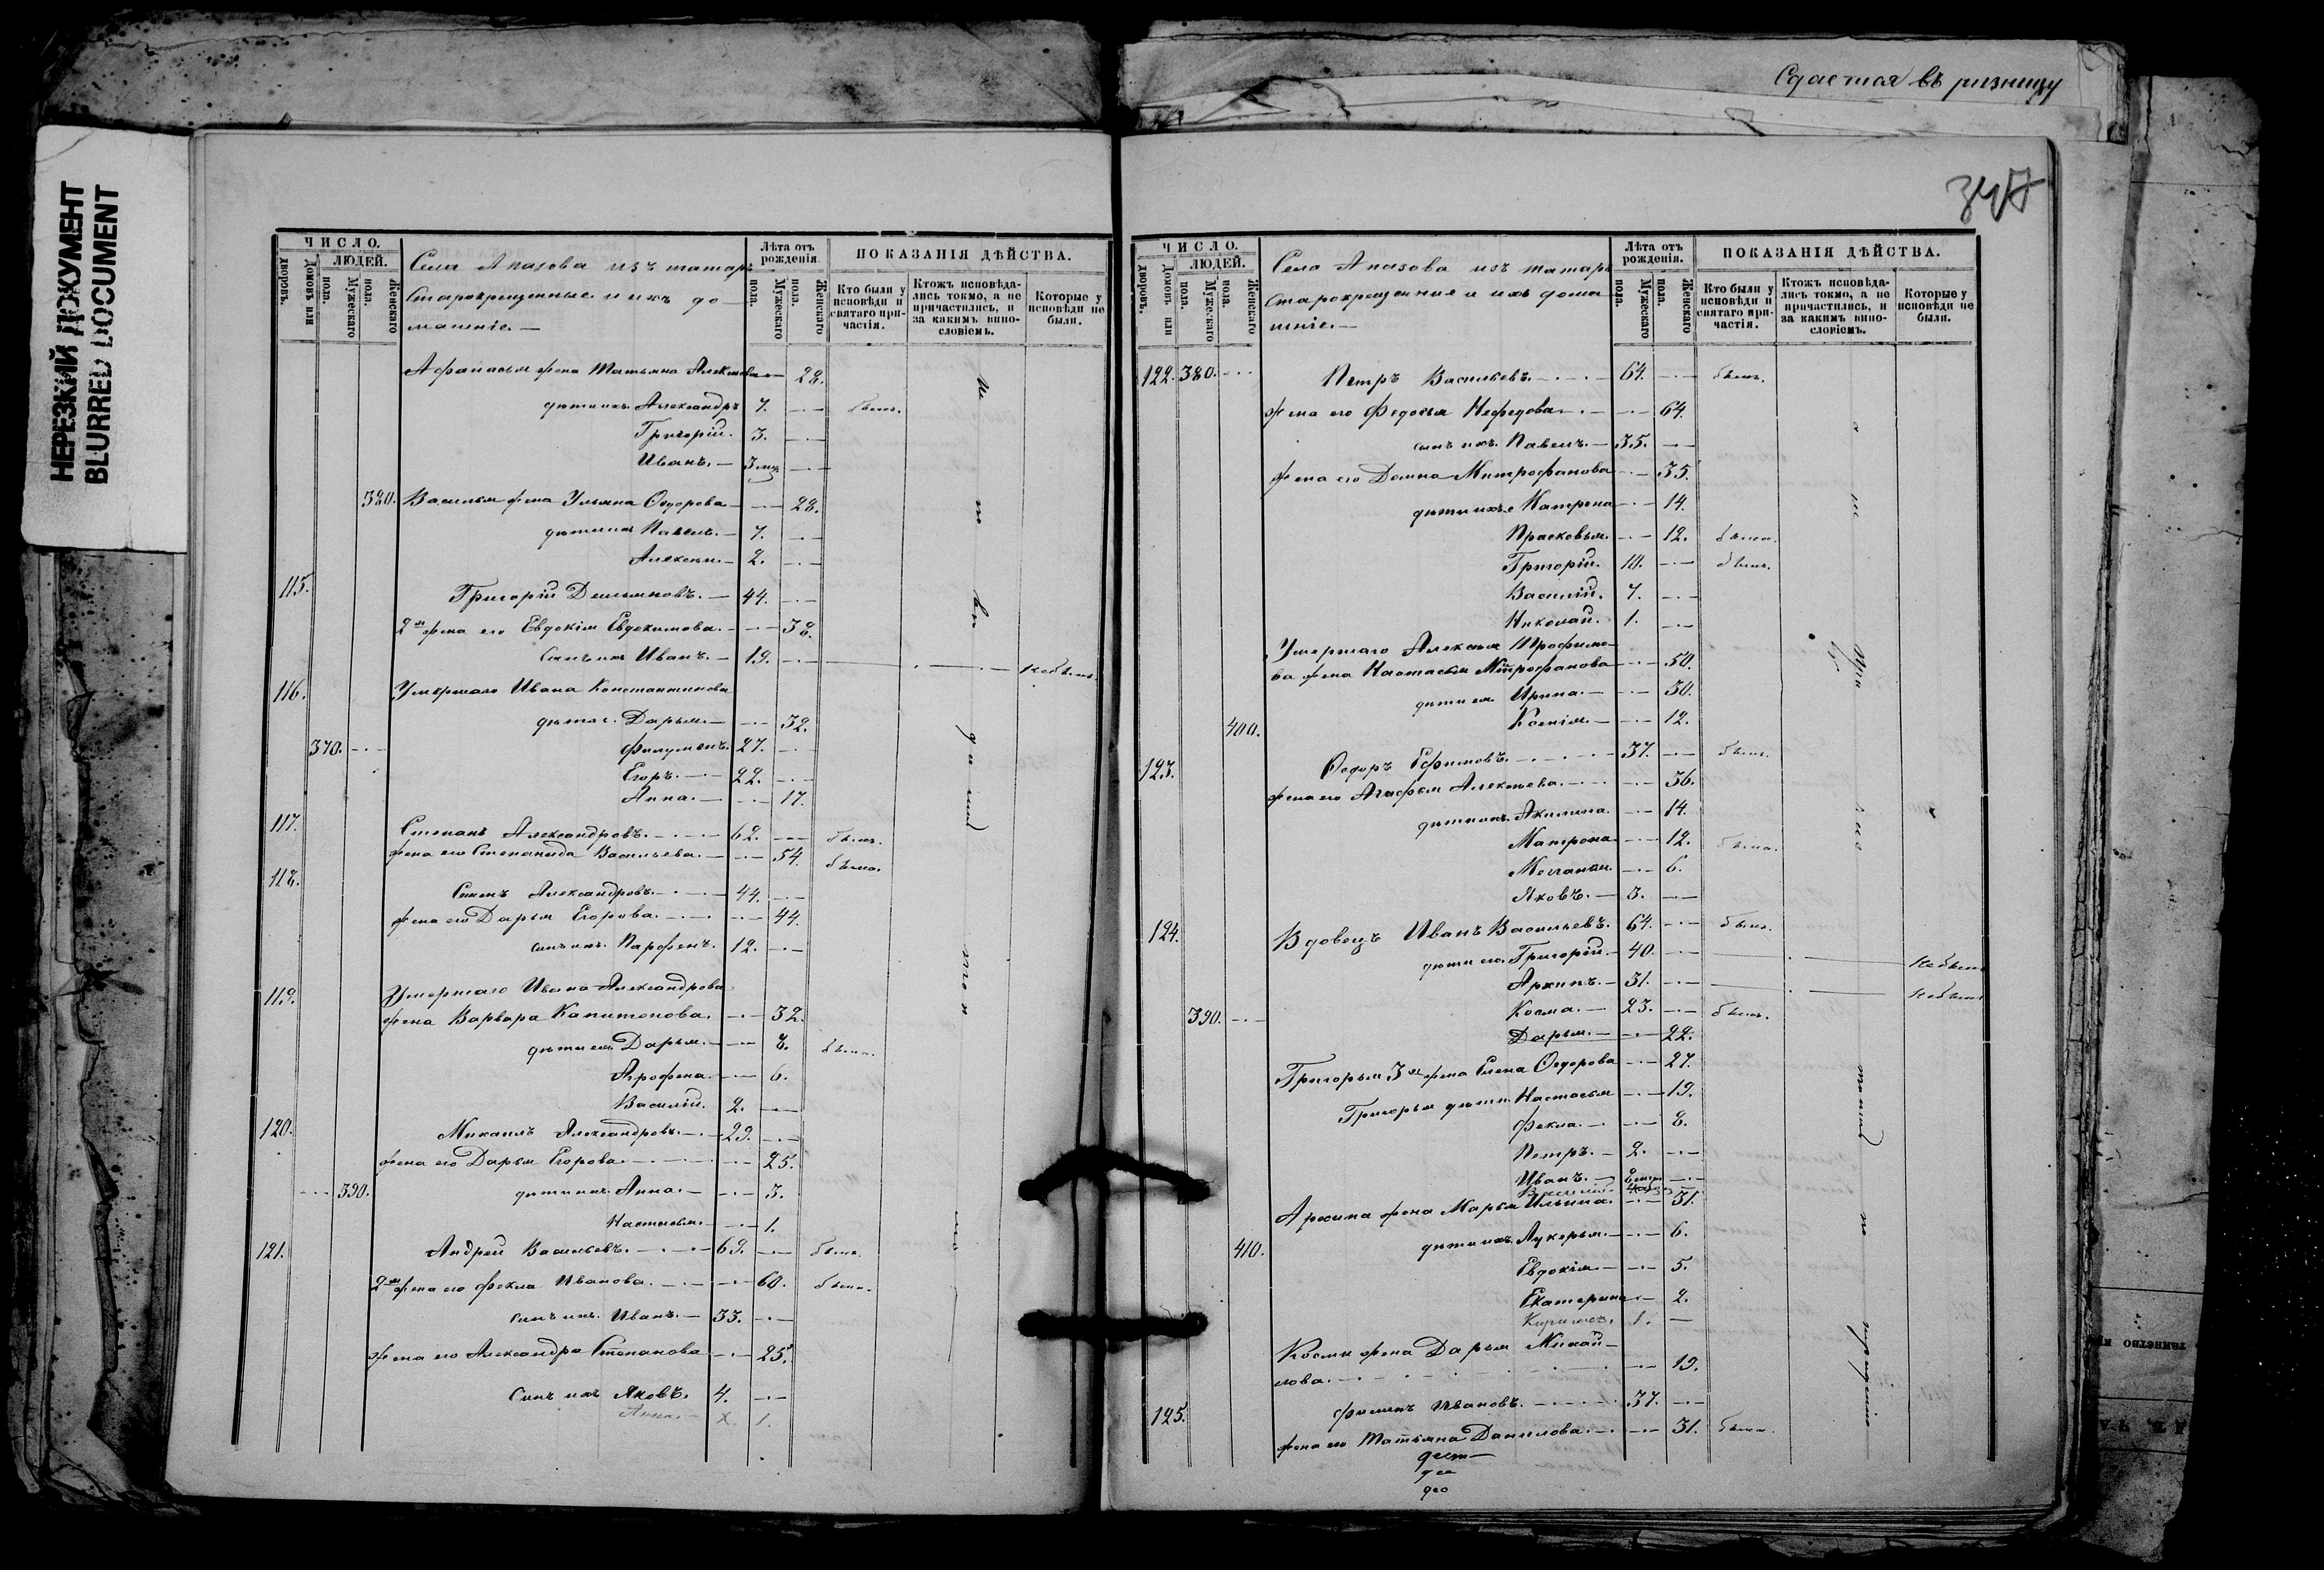 Сдается въ ризницу
НЕРЕЗКИЙ ДОКУМЕНТ
BLURRED DOCUMENT
ЧИСЛО.
ЛЮДЕЙ.
Домовъ или дворовъ.
Мужескаго пола.
Женскаго пола.
Села Апазова изъ татаръ
Старокрещенные и ихъ до-
машніе. —
Лѣта отъ рожденія.
Мужескаго пола.
Женскаго пола.
ПОКАЗАНІЯ ДѢЙСТВА.
Кто были у исповѣди и святаго причастія.
Ктожъ исповѣдались токмо, а не причастились, и за какимъ винословіемъ.
Которые у исповѣди не были.
Афанасья жена Татьяна Алексѣева — 28.
дѣти ихъ Александръ 7. былъ.
Григорій. 3.
Иванъ. — 3 мѣс.
380. Василья жена Ульяна Ѳедорова — 28.
дѣти ихъ Павелъ. — 7.
Алексѣй. — 2.
115. Григорій Демьяновъ. — 44.
2я жена его Евдокія Евдокимова. — 38.
Сынъ ихъ Иванъ. — 19. — Не былъ.
116. Умершаго Ивана Константинова
дѣти: Дарья. — 32.
370. Филумонъ. 27.
Егоръ. — 22.
Анна. — 17.
117. Степанъ Александровъ. — 62. былъ.
жена его Степанида Васильева. — 54. была.
118. Семенъ Александровъ. — 44.
жена его Дарья Егорова. — 44.
сынъ ихъ Парфенъ. 12.
119. Умершаго Ивана Александрова
жена Варвара Капитонова. — 32.
дѣти ея Дарья. — 8. была.
Агрофена — 6.
Василій. 2.
120. Михаилъ Александровъ. — 29.
жена его Дарья Егорова — 25.
390. дѣти ихъ Анна. — 3.
Настасья. — 1.
121. Андрей Васильевъ. — 69. былъ.
2я жена его Фекла Иванова. — 60. была.
сынъ ихъ Иванъ. — 33.
жена его Александра Степанова — 25.
Сынъ ихъ Яковъ. 4.
Анна. — 1.
347
ЧИСЛО.
ЛЮДЕЙ.
Домовъ или дворовъ.
Мужескаго пола.
Женскаго пола.
Село Апазова изъ татаръ
Старокрещенныя и ихъ дома
шніе. —
Лѣта отъ рожденія.
Мужескаго пола.
Женскаго пола.
ПОКАЗАНІЯ ДѢЙСТВА.
Кто были у исповѣди и святаго причастія.
Ктожъ исповѣдались токмо, а не причастились, и за какимъ винословіемъ.
Которые у исповѣди не были.
122. 380. Петръ Васильевъ. — 64. былъ.
жена его Федосья Нефедова. — 64.
сынъ ихъ Павелъ. — 35.
жена его Домна Митрофанова — 35.
дѣти ихъ Матрена — 14.
Прасковья. — 12. была.
Григорій. 10. былъ.
Василій. 7.
Николай. 1.
Умершаго Алексѣя Трофимо-
ва жена Настасья Митрофанова — 50.
дѣти ея Ирина. — 30.
400. Ксенія. — 12.
123. Ѳедоръ Ефимовъ. — 37. былъ.
жена его Агафья Алексѣева. — 36.
дѣти ихъ Акилина. — 14.
Матрона — 12. была.
Меланья. — 6.
Яковъ. — 3.
124. Вдовецъ Иванъ Васильевъ. 64. былъ.
дѣти его Григорій. — 40. — Не былъ
Архипъ. — 31. — Не былъ
390. Косма. — 23. былъ.
Дарья. — 22.
Григорья 3я жена Елена Ѳедорова — 27.
Григорья дѣти Настасья — 19.
Фекла. — 8.
Петръ. — 2.
Иванъ. —
Архипа жена Марья Ильина. — 31.
410. дѣти ихъ Лукерья. — 6.
Евдокія — 5.
Екатерина — 2.
Кириллъ. 1. —
Космы жена Дарья Михай-
лова. — 19.
125. Филипъ Ивановъ. — 37.
жена его Татьяна Данилова. — 31. была.